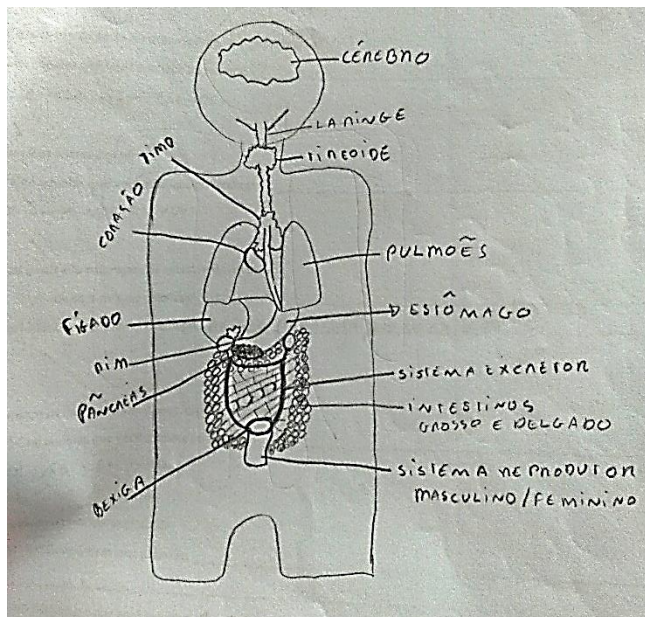 CÉREBRO
LARINGE
TIREOIDE
TIMO
CORAÇÃO
PULMOẼS
FÍGADO
ESTÔMAGO
RIM
PÃNCREÁS
SISTEMA EXCRETOR
INTESTINOS
GROSSO E DELGADO
BEXIGA
SISTEMA REPRODUTOR
MASCULINO/FEMININO